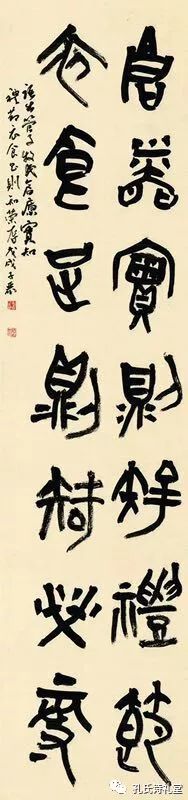 倉廩實則知禮節
衣食足則知榮辱
語出管子牧民倉廩實知
禮節衣食足則知榮辱戊戌
孔氏诗礼堂